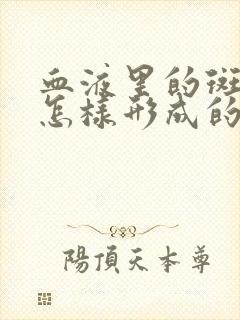 血液里的斑
怎樣形成的
陽頂天本尊